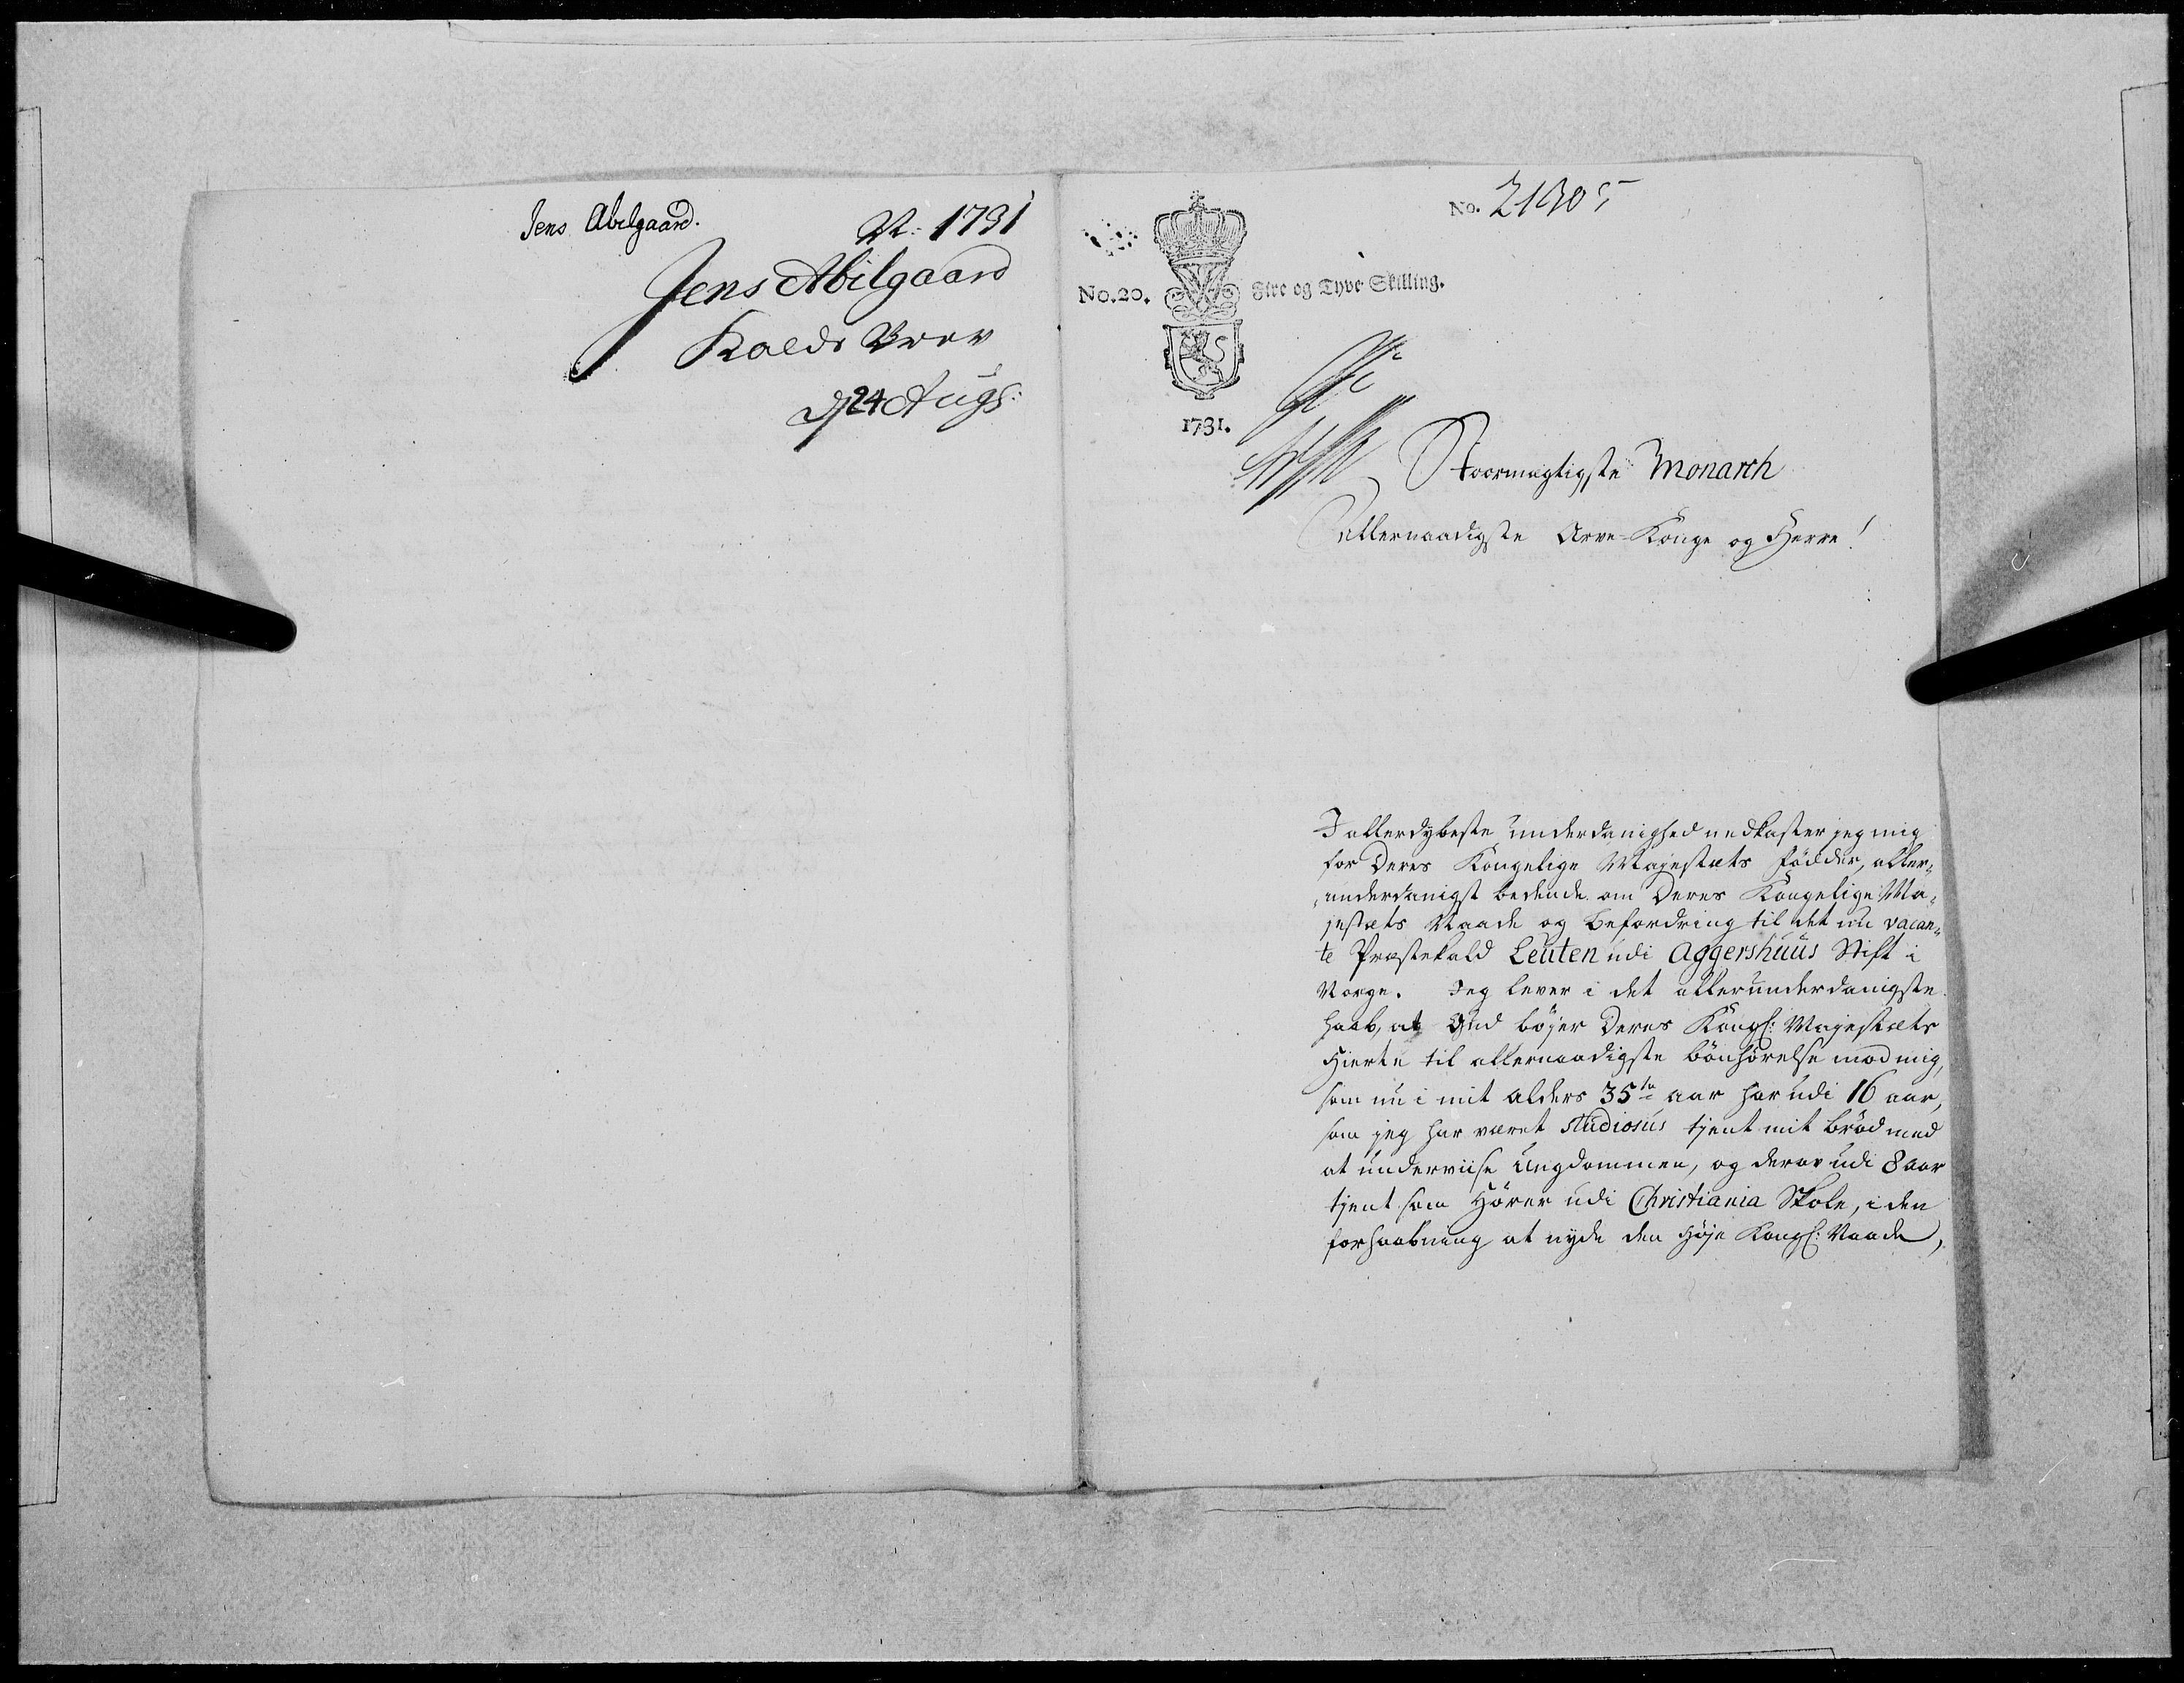 Jens Abilgaard.
N: 1731
Jens Abilgaard
Kalds Brev
d 24 Augs:
No. 21305
No. 20.
Fire og Tyve Skilling.
1731.
Stoormægtigste Monarch
Allernaadigste Arve-Konge og Herre!
I allerdybeste underdanighed nedkaster jeg mig
for Deres Kongelige Majestæts fødder, aller„
„underdanigst bedende om Deres Kongelige Ma„
jestæts Naade og befordring til det nu vacan„
te Præstekald Leuten udi Aggershuus Stift i
Norge. Jeg lever i det allerunderdanigste
haab, at Gud bøjer Deres Kongl: Majestæts
Hierte til allernaadigste bønhørelse mod mig,
som nu i mit alders 35te aar har udi 16 aar,
som jeg har været studiosus tjent mit brød med
at underviise Ungdommen, og derav udi 8 aar
tjent som Hører udi Christiania Skole, i den
forhaabning at nyde den høje Kongl: Naade,